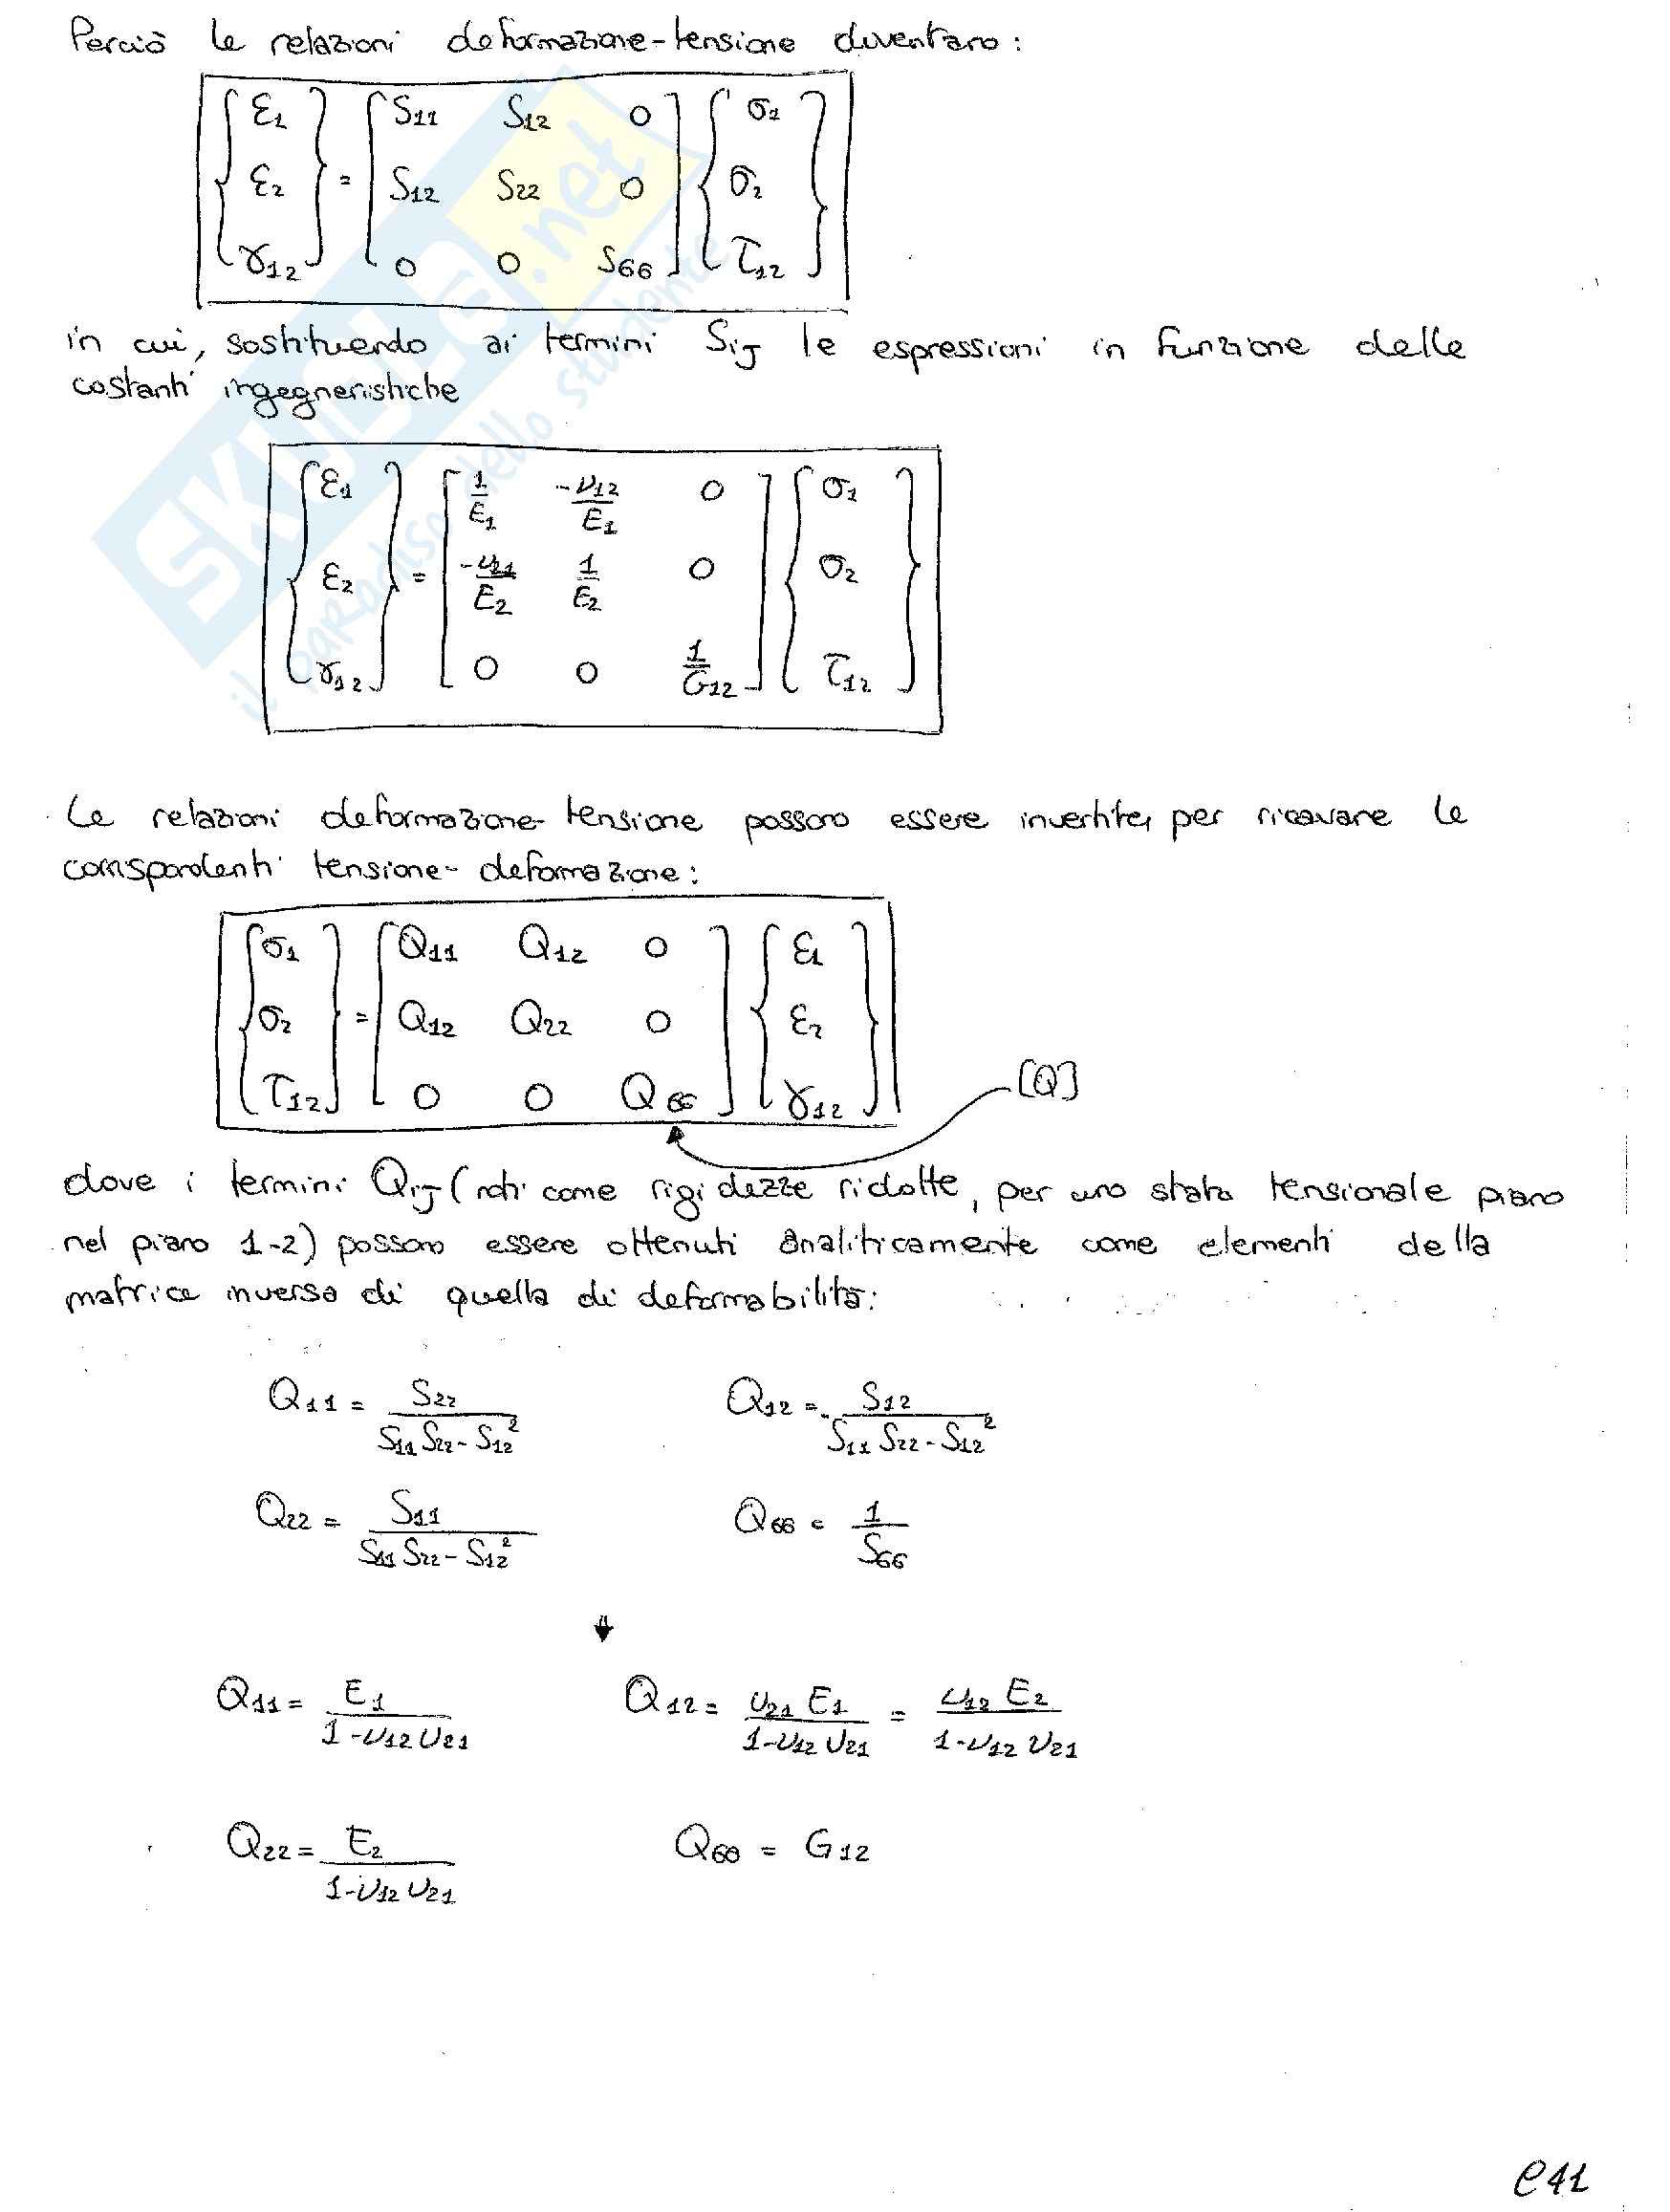 Perciò le relazioni deformazione-tensione diventano:
{ε1 ε2 γ12} = [S11 S12 0; S12 S22 0; 0 0 S66] {σ1 σ2 τ12}
in cui, sostituendo ai termini Sij le espressioni in funzione delle
costanti ingegneristiche
{ε1 ε2 γ12} = [1/E1 -ν12/E1 0; -ν21/E2 1/E2 0; 0 0 1/G12] {σ1 σ2 τ12}
Le relazioni deformazione-tensione possono essere invertite, per ricavare le
corrispondenti tensione-deformazione:
{σ1 σ2 τ12} = [Q11 Q12 0; Q12 Q22 0; 0 0 Q66] {ε1 ε2 γ12}
[Q]
dove i termini Qij (noti come rigidezze ridotte, per uno stato tensionale piano
nel piano 1-2) possono essere ottenuti analiticamente come elementi della
matrice inversa di quella di deformabilità:
Q11 = S22/(S11 S22 - S12²) Q12 = - S12/(S11 S22 - S12²)
Q22 = S11/(S11 S22 - S12²) Q66 = 1/S66
Q11 = E1/(1-ν12 ν21) Q12 = ν21 E1/(1-ν12 ν21) = ν12 E2/(1-ν12 ν21)
Q22 = E2/(1-ν12 ν21) Q66 = G12
C41
SKUOLA.net
il paradiso dello studente